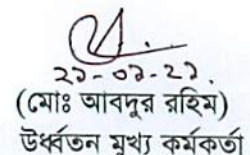 ২১-০১-২১.
(মোঃ আবদুর রহিম)
উর্ধ্বতন মুখ্য কর্মকর্তা